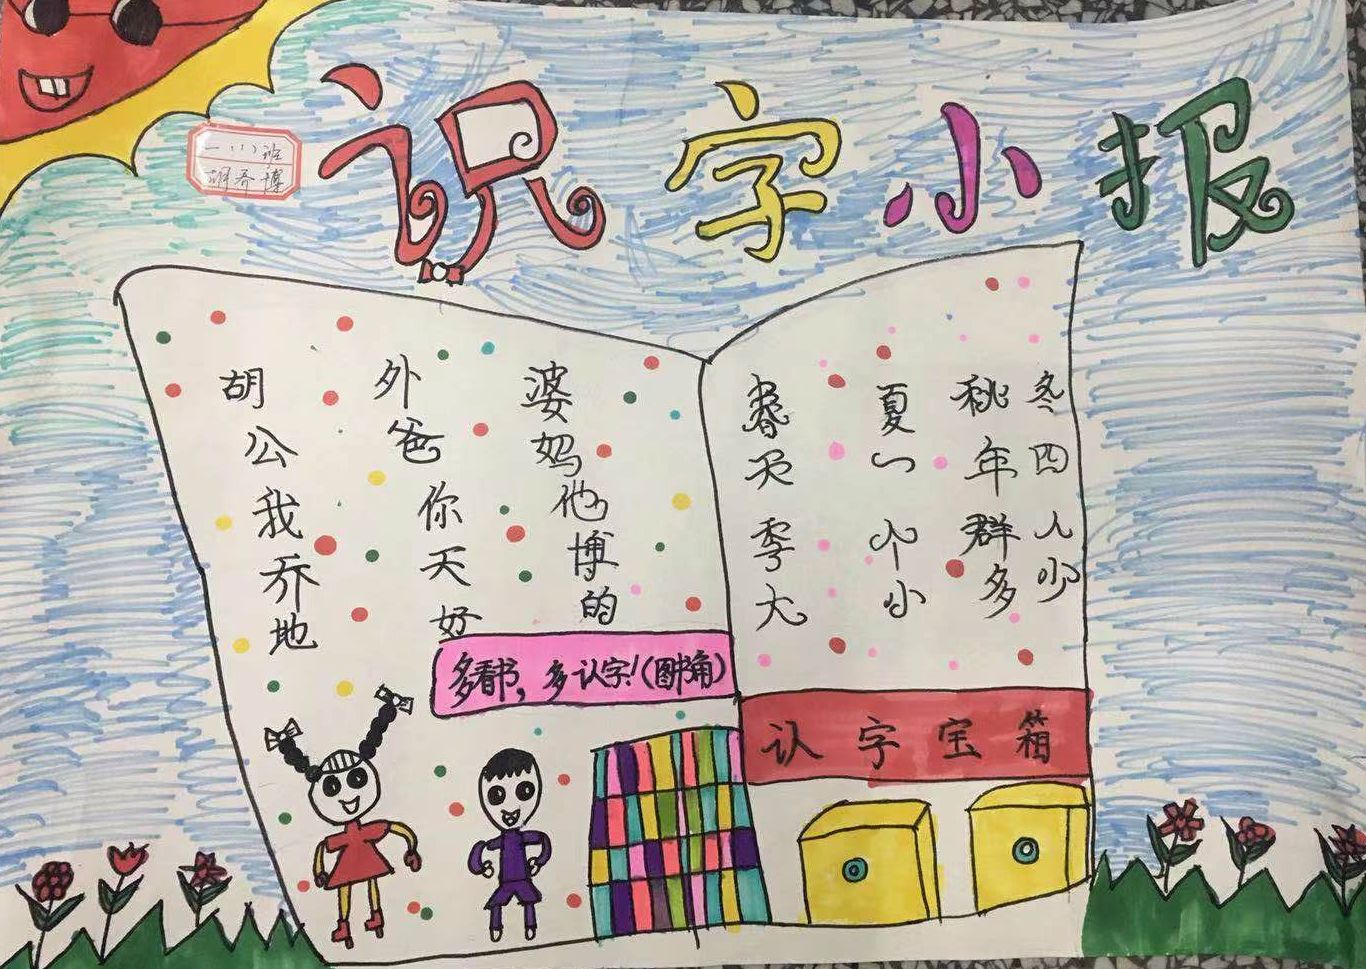 识字小报
一(1)班
胡乔博
胡外婆
公爸妈
我你他
乔天博
地好的
春夏秋冬
天一年四
季个群人
大小多少
多看书，多认字！(图书角)
认字宝箱